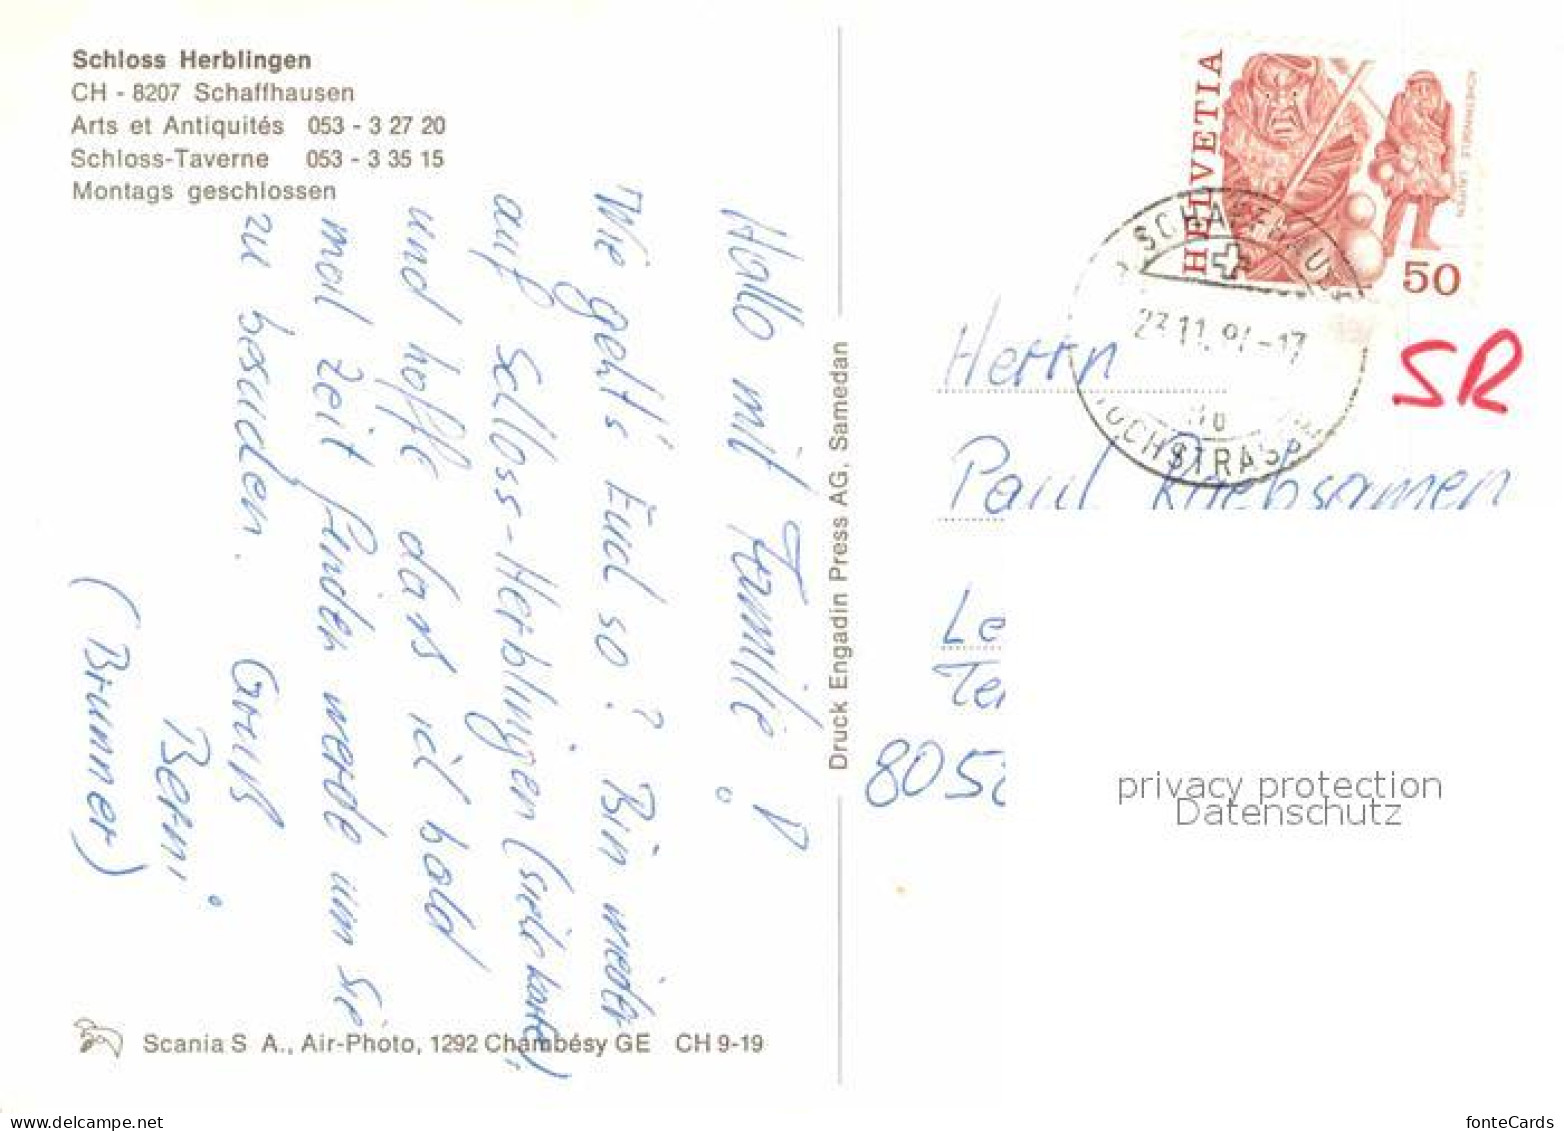 Schloss Herblingen
CH - 8207 Schaffhausen
Arts et Antiquités 053 - 3 27 20
Schloss-Taverne 053 - 3 35 15
Montags geschlossen
Hallo mit Familie!
Wie geht's Euch so? Bin wieder
auf Schloss-Herblingen (siehe Karte)
und hoffe dass ich bald
mal Zeit finden werde um Sie
zu besuchen.
Gruss
Berni
(Brunner)
Scania S A., Air-Photo, 1292 Chambésy GE CH 9-19
Druck Engadin Press AG, Samedan
HELVETIA
ACHETRINGELE LAUPEN
50
SCHAFFHAUSEN
11.
-17
HOCHSTRASSE
SR
Herrn
Paul Rhebsamen
Le
Te
805
privacy protection
Datenschutz
www.delcampe.net
fonteCards